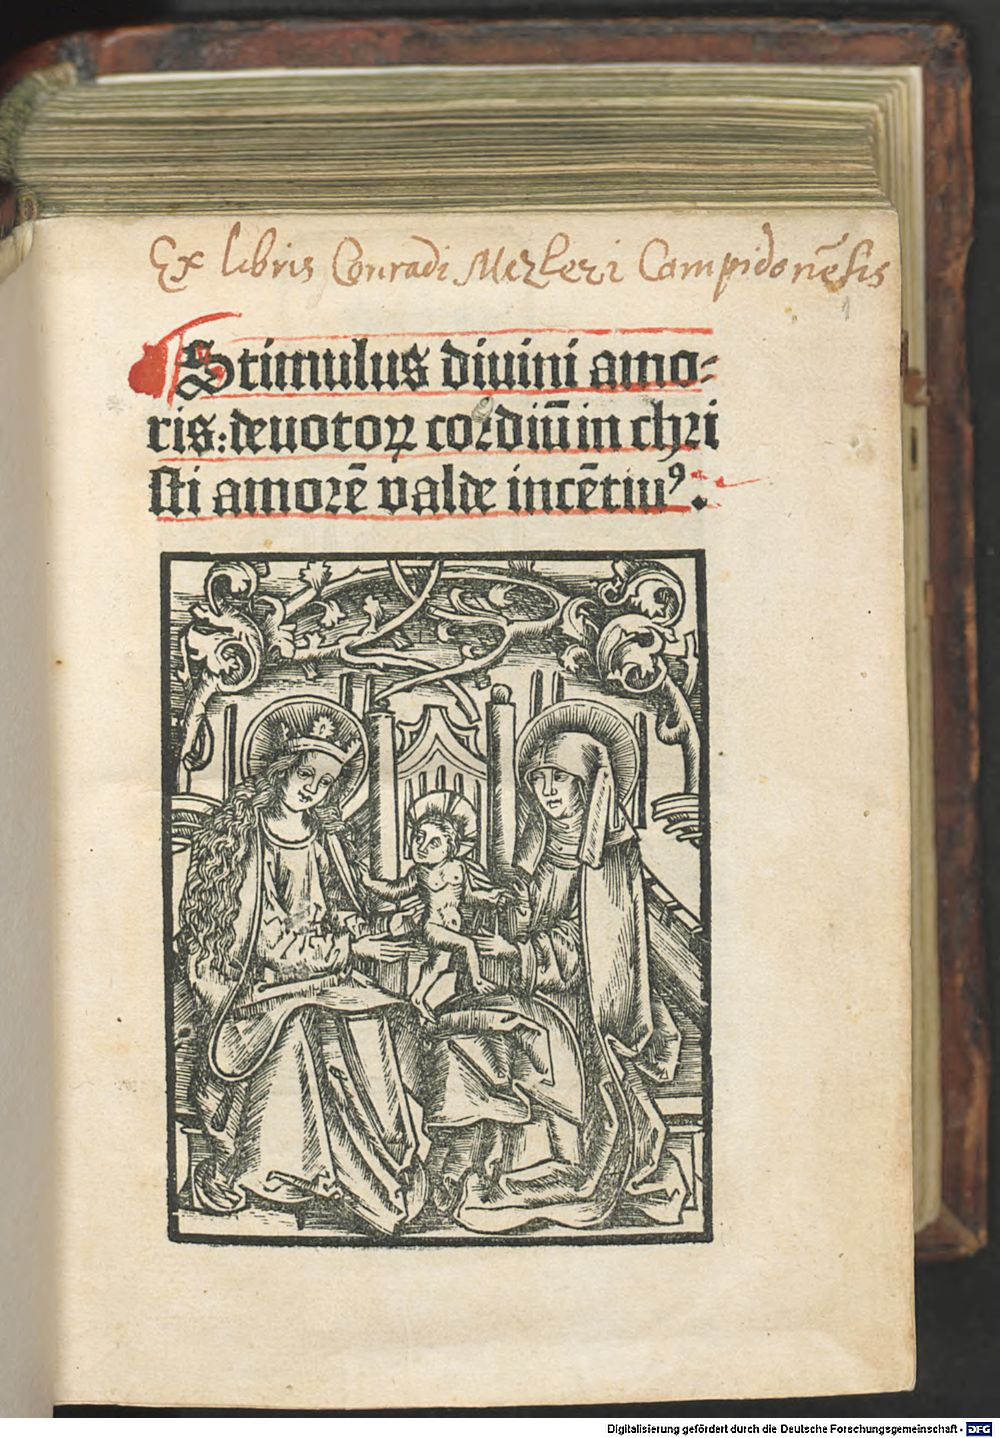 Ex libris Conradi Mezleri Campidonēsis
1
Stimulus diuini amo⸗
ris: deuotoꝝ cordiū in chri
sti amorē valde incētiuꝰ.
Digitalisierung gefördert durch die Deutsche Forschungsgemeinschaft - DFG